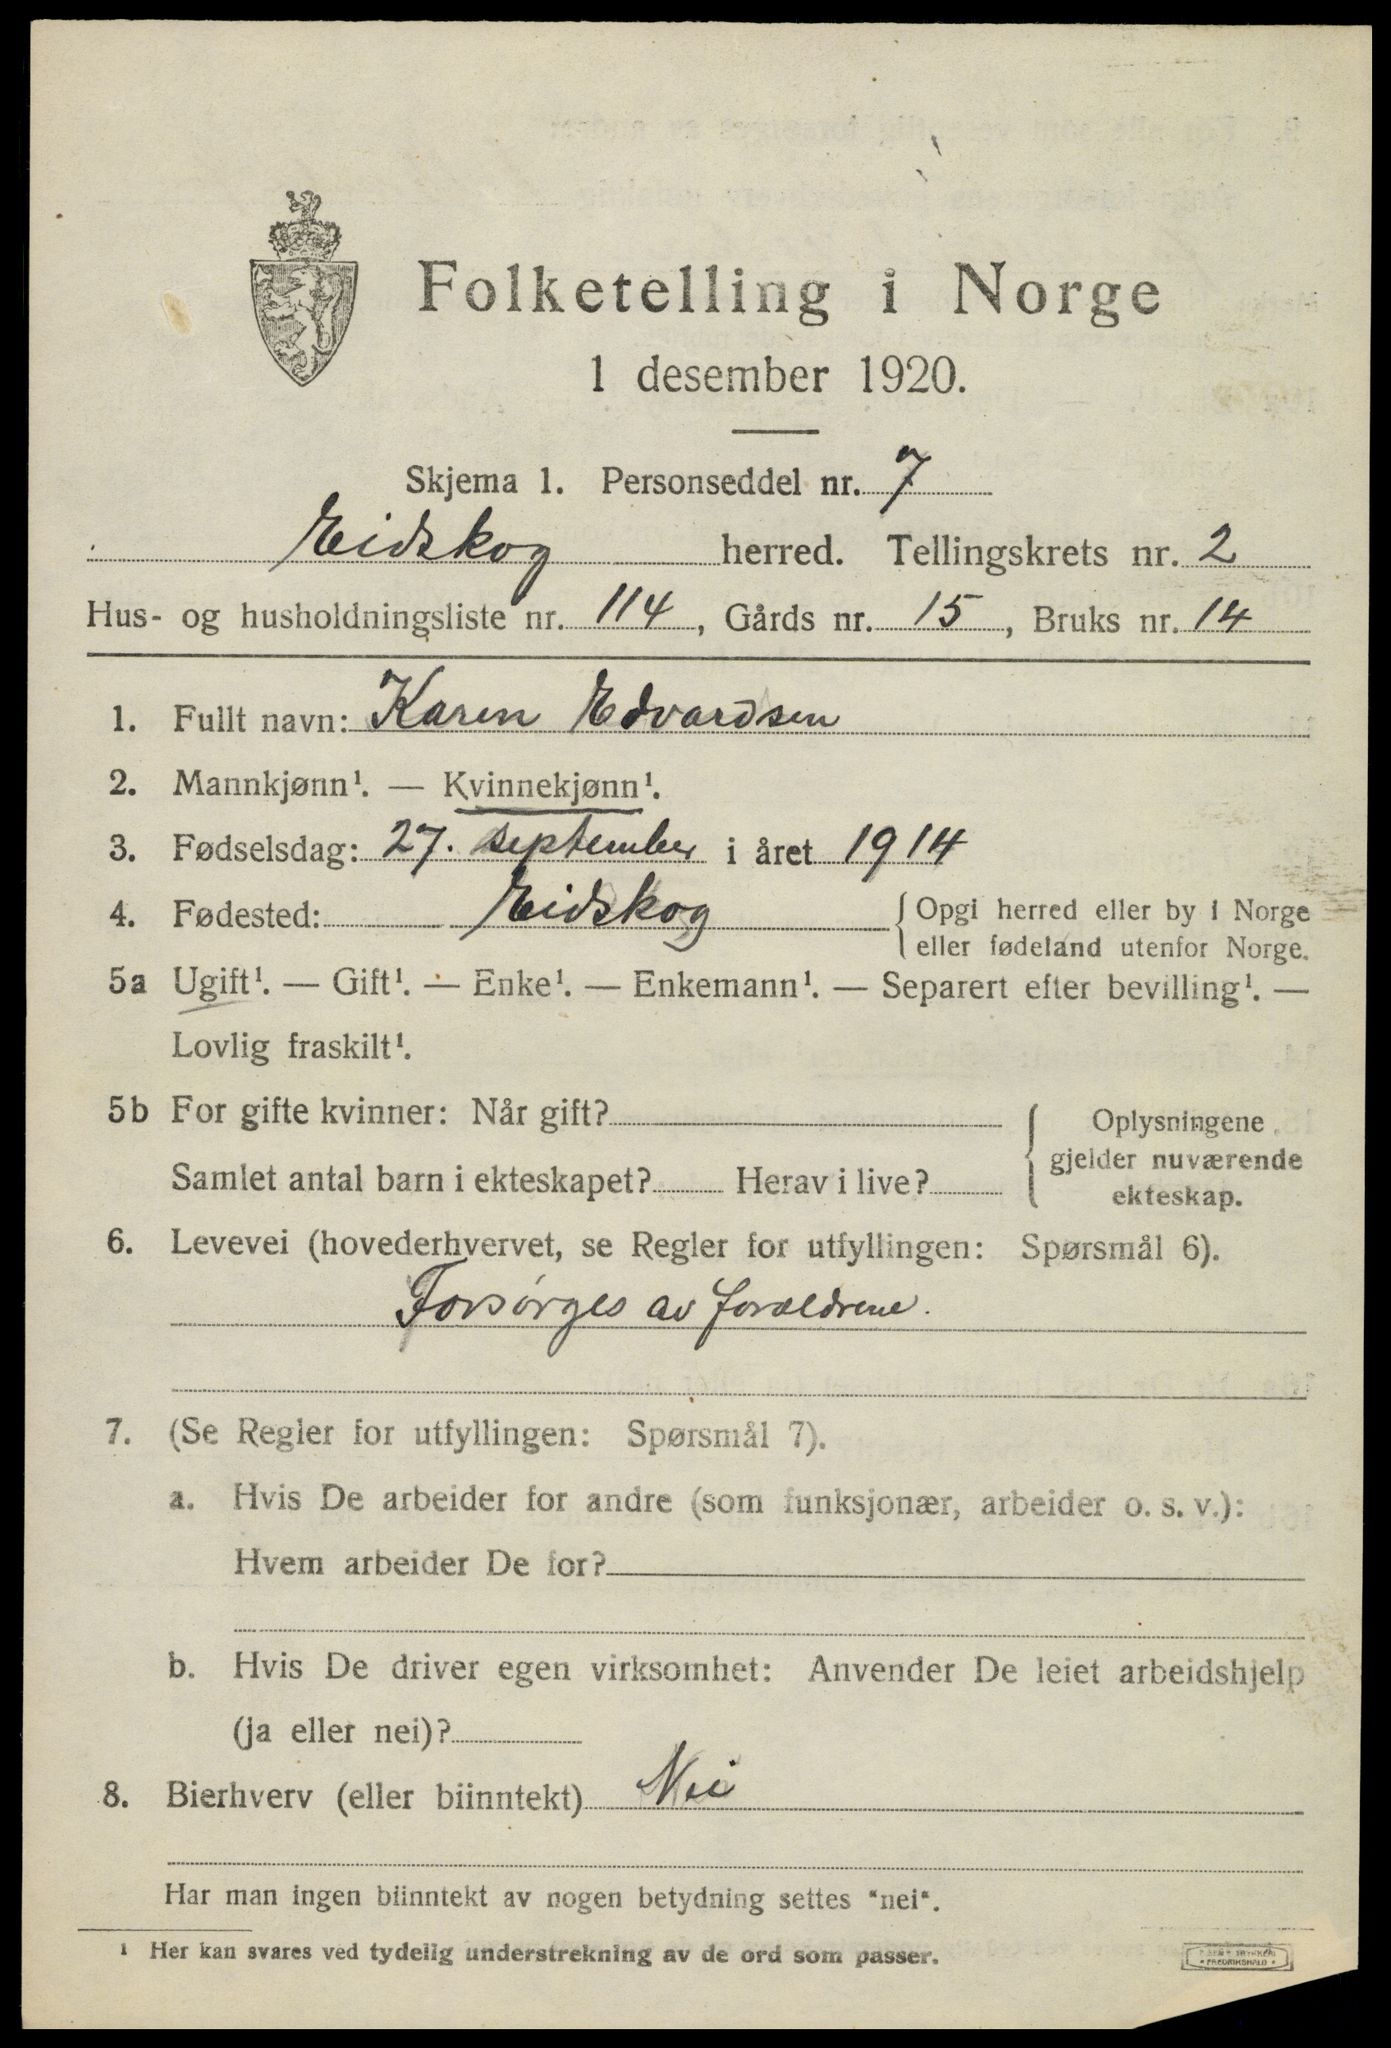 Folketelling i Norge
1 desember 1920.
Skjema 1. Personseddel nr. 7
Eidskog herred. Tellingskrets nr. 2
Hus- og husholdningsliste nr. 114, Gårds nr. 15, Bruks nr. 14
1. Fullt navn: Karen Edvardsen
2. Mannkjønn¹. — Kvinnekjønn¹.
3. Fødselsdag: 27. september i året 1914
4. Fødested: Eidskog { Opgi herred eller by i Norge
eller fødeland utenfor Norge.
5a Ugift¹. — Gift¹. — Enke¹. — Enkemann¹. — Separert efter bevilling¹. —
Lovlig fraskilt¹.
5b For gifte kvinner: Når gift?
Samlet antal barn i ekteskapet? Herav i live?
Oplysningene
gjelder nuværende
ekteskap.
6. Levevei (hovederhvervet, se Regler for utfyllingen: Spørsmål 6).
Forsørges av forældrene.
7. (Se Regler for utfyllingen: Spørsmål 7).
a. Hvis De arbeider for andre (som funksjonær, arbeider o. s. v.):
Hvem arbeider De for?
b. Hvis De driver egen virksomhet: Anvender De leiet arbeidshjelp
(ja eller nei)?
8. Bierhverv (eller biinntekt) Nei
Har man ingen biinntekt av nogen betydning settes "nei".
¹ Her kan svares ved tydelig understrekning av de ord som passer.
FREDRIKSHALD